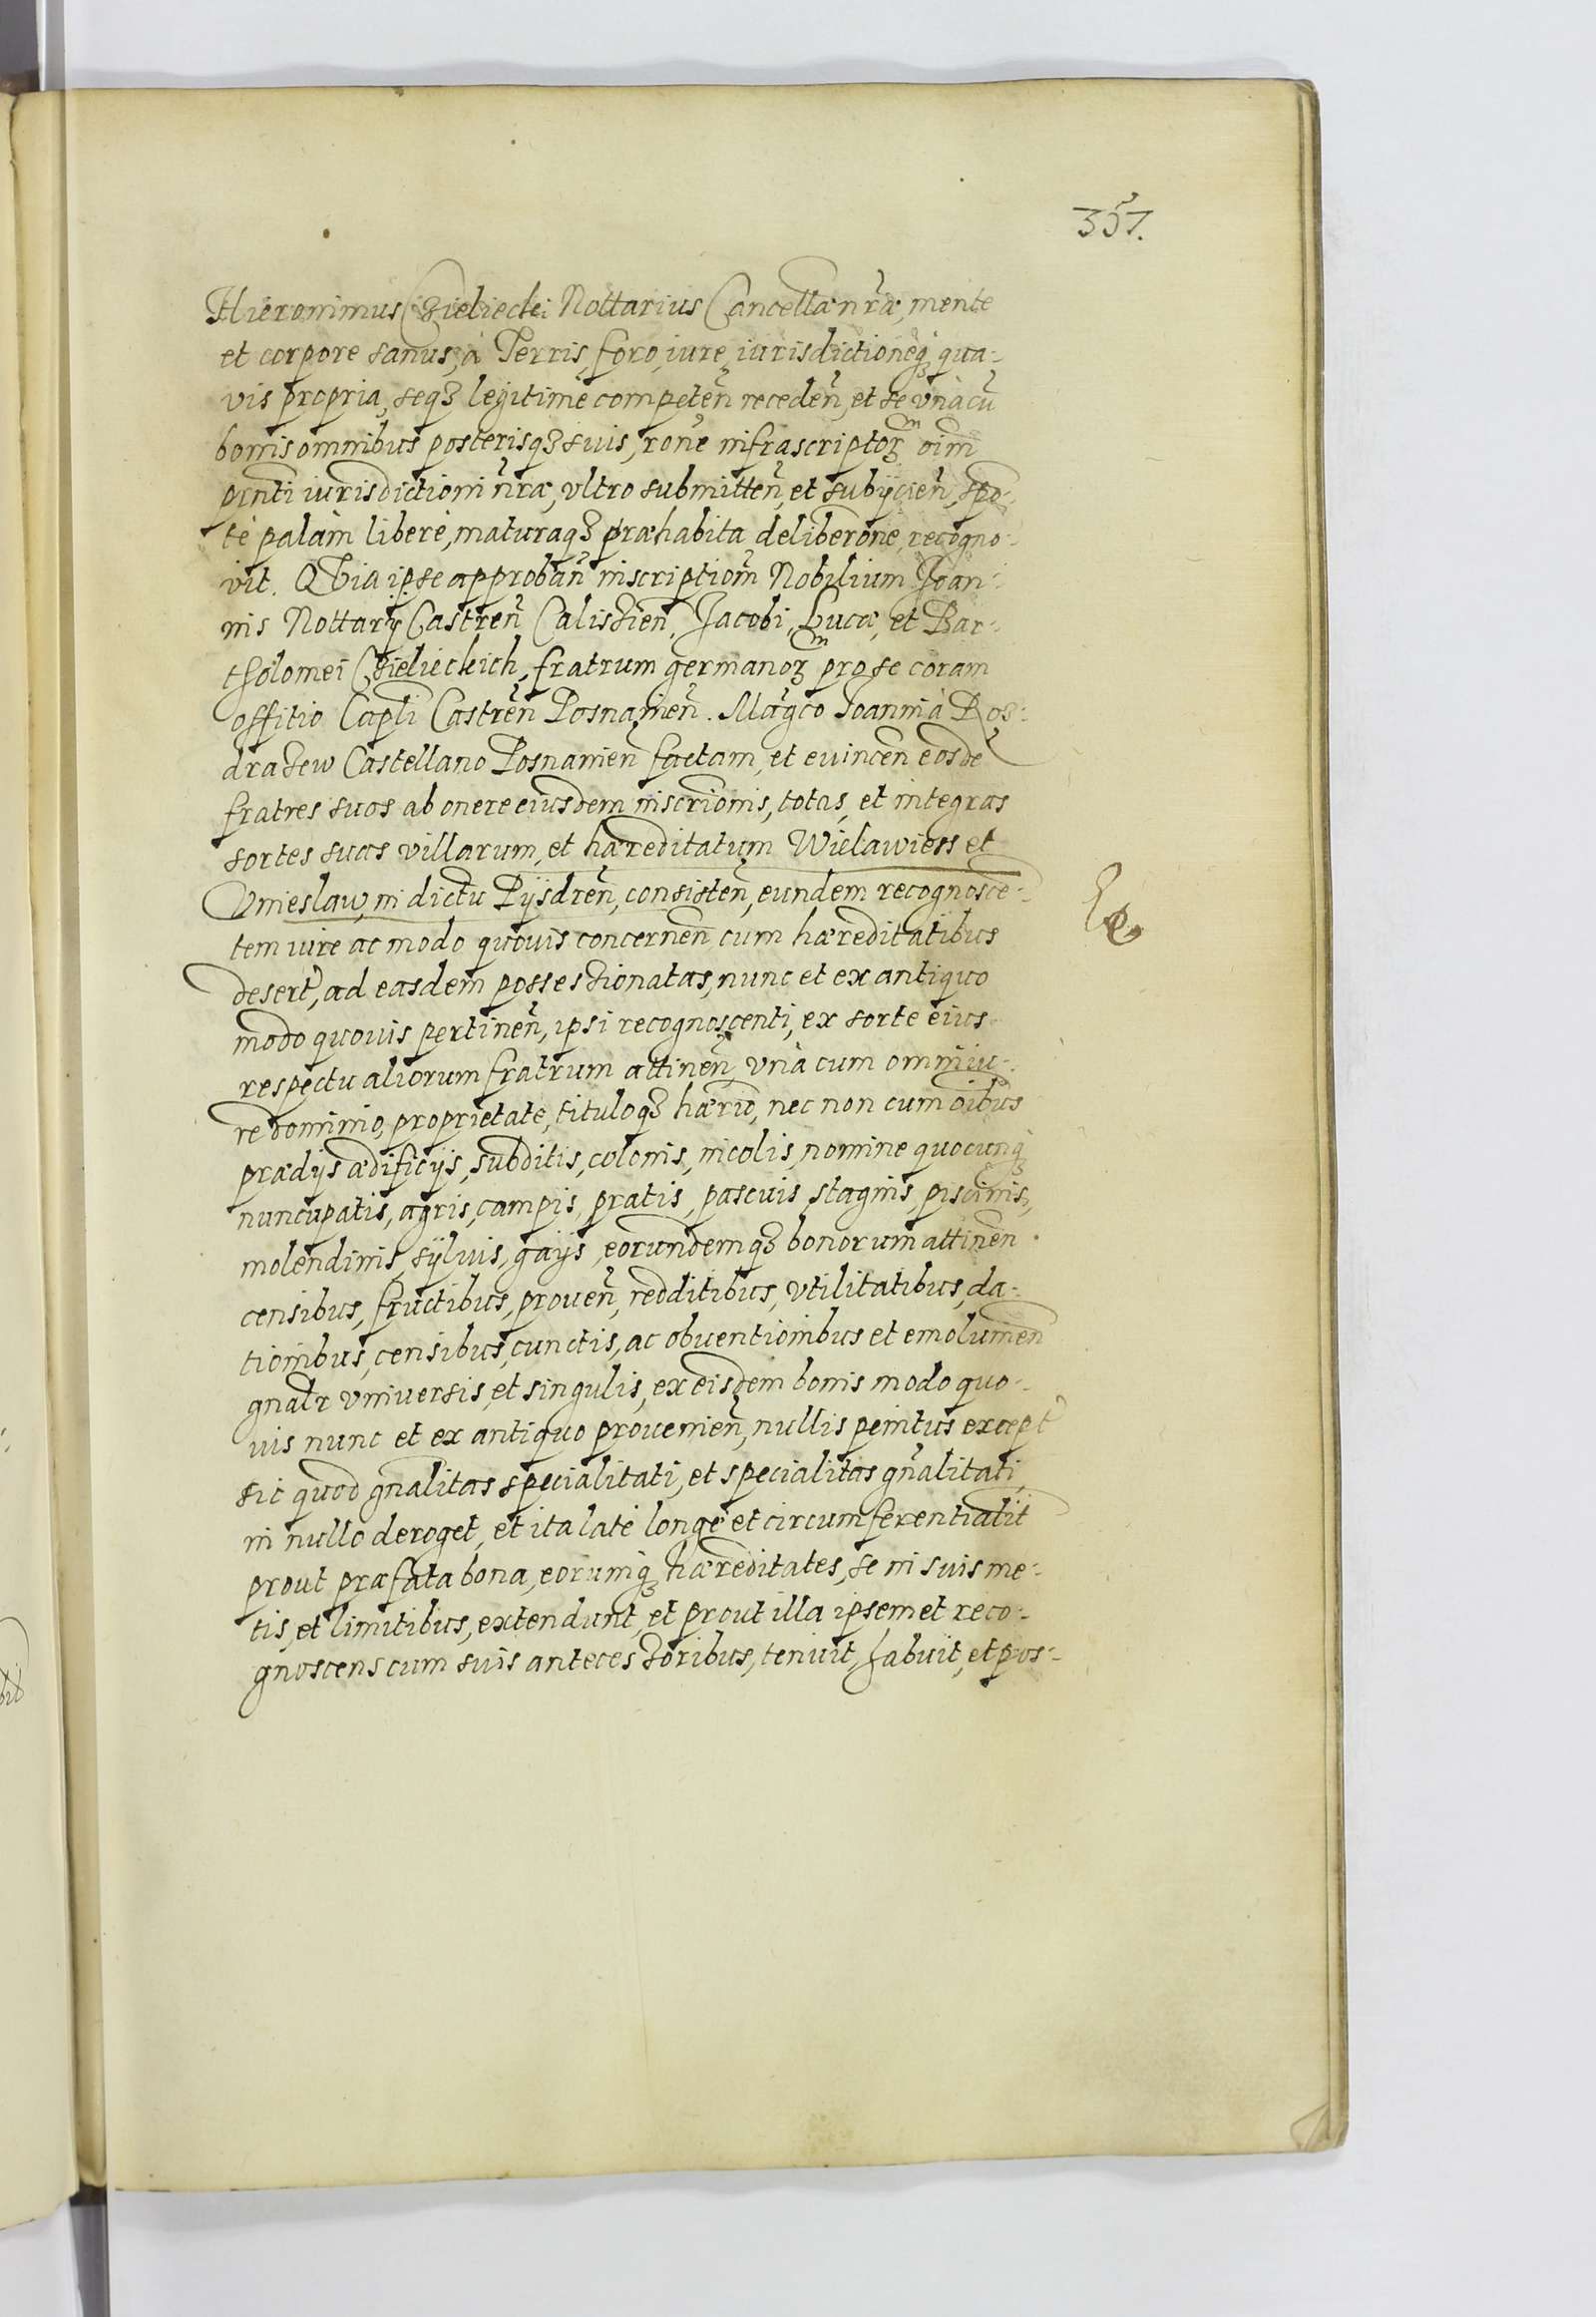 357.
Hieronimus Czielieckj Nottarius Cancellæ nr̃æ, mente
et corpore sanus, à Terris, foro, iure, iurisdictioneq₃ qua-
vis propria, seq₃ legitimè competen̄ receden̄, et se vnà cū
bonis omnibus posterisq₃ suis, rōne infrascriptoꝝ oīm
pn̄ti iurisdictioni nr̃æ, vltro submitten̄, et subijcien̄, spo-
tè palàm liberè, maturaq₃ præhabita deliberōne, recogno-
vit. QVia ipse approban̄ inscriptiom̄ Nobilium Joan-
nis Nottarij Castren̄ Calissien̄, Jacobi, Lucæ, et Bar-
tholomei Czielieckich, fratrum germanoꝝ pro se coram
offitio Capli Castren̄ Posnanien̄. Magco Joanni à Ros-
drasew Castellano Posnanien̄ factam, et euincen̄ eosdē
fratres suos ab onere eiusdem inscriōnis, totas, et integras
sortes suas villarum, et hæreditatum Wielawiess et
Vnieslaw, in dictu Pijsdren̄, consisten̄, eundem recognosce-
tem iure ac modo quouis concernen̄ cum hæreditatibus
desert, ad easdem possessionatas, nunc et ex antiquo
modo quouis pertinen̄, ipsi recognoscenti, ex sorte eius
respectu aliorum fratrum attinen̄ vnà cum omni iu-
re dominio, proprietate, tituloq₃ hærio, nec non cum oībus
prædijs ædificijs, subditis, colonis, incolis, nomine quocunq₃
nuncupatis, agris, campis, pratis, pascuis, stagnis, piscinis,
molendinis, sÿluis, gaijs, eorundemq₃ bonorum attinen̄
censibus, fructibus, prouen̄, redditibus, vtilitatibus, da-
tionibus, censibus, cunctis, ac obuentionibus et emolumen̄
gnalr vniuersis, et singulis, ex eisdem bonis modo quo-
uis nunc et ex antiquo prouenien̄, nullis penitus except
sic quod gn̄alitas specialitati, et specialitas gn̄alitati,
in nullo deroget, et ita latè longè et circumferentialit
prout præfata bona, eorumq₃ hæreditates, se in suis me-
tis, et limitibus, extendunt, et prout illa ipsemet reco-
gnoscens cum suis antecessoribus, tenuit, habuit, et pos-